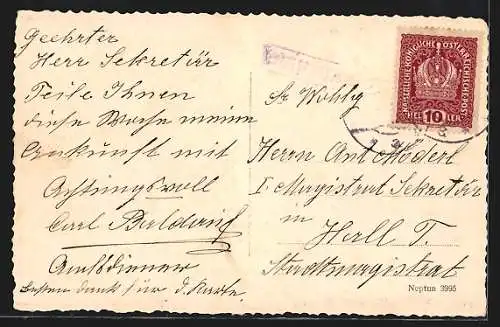 Geehrter
Herr Sekretär
Teile Ihnen
diese Woche meine
Ankunft mit
Achtungsvoll
Carl Baldauf
Amtsdiener
besten Dank für d. Karte
KAISERLICHE KÖNIGLICHE ÖSTERREICHISCHE POST
HELLER 10 HELLER
Sr Wohlg
Herrn Ant. Moderl
I. Magistrat Sekretär
in
Hall T.
Stadtmagistrat
Neptun 3995